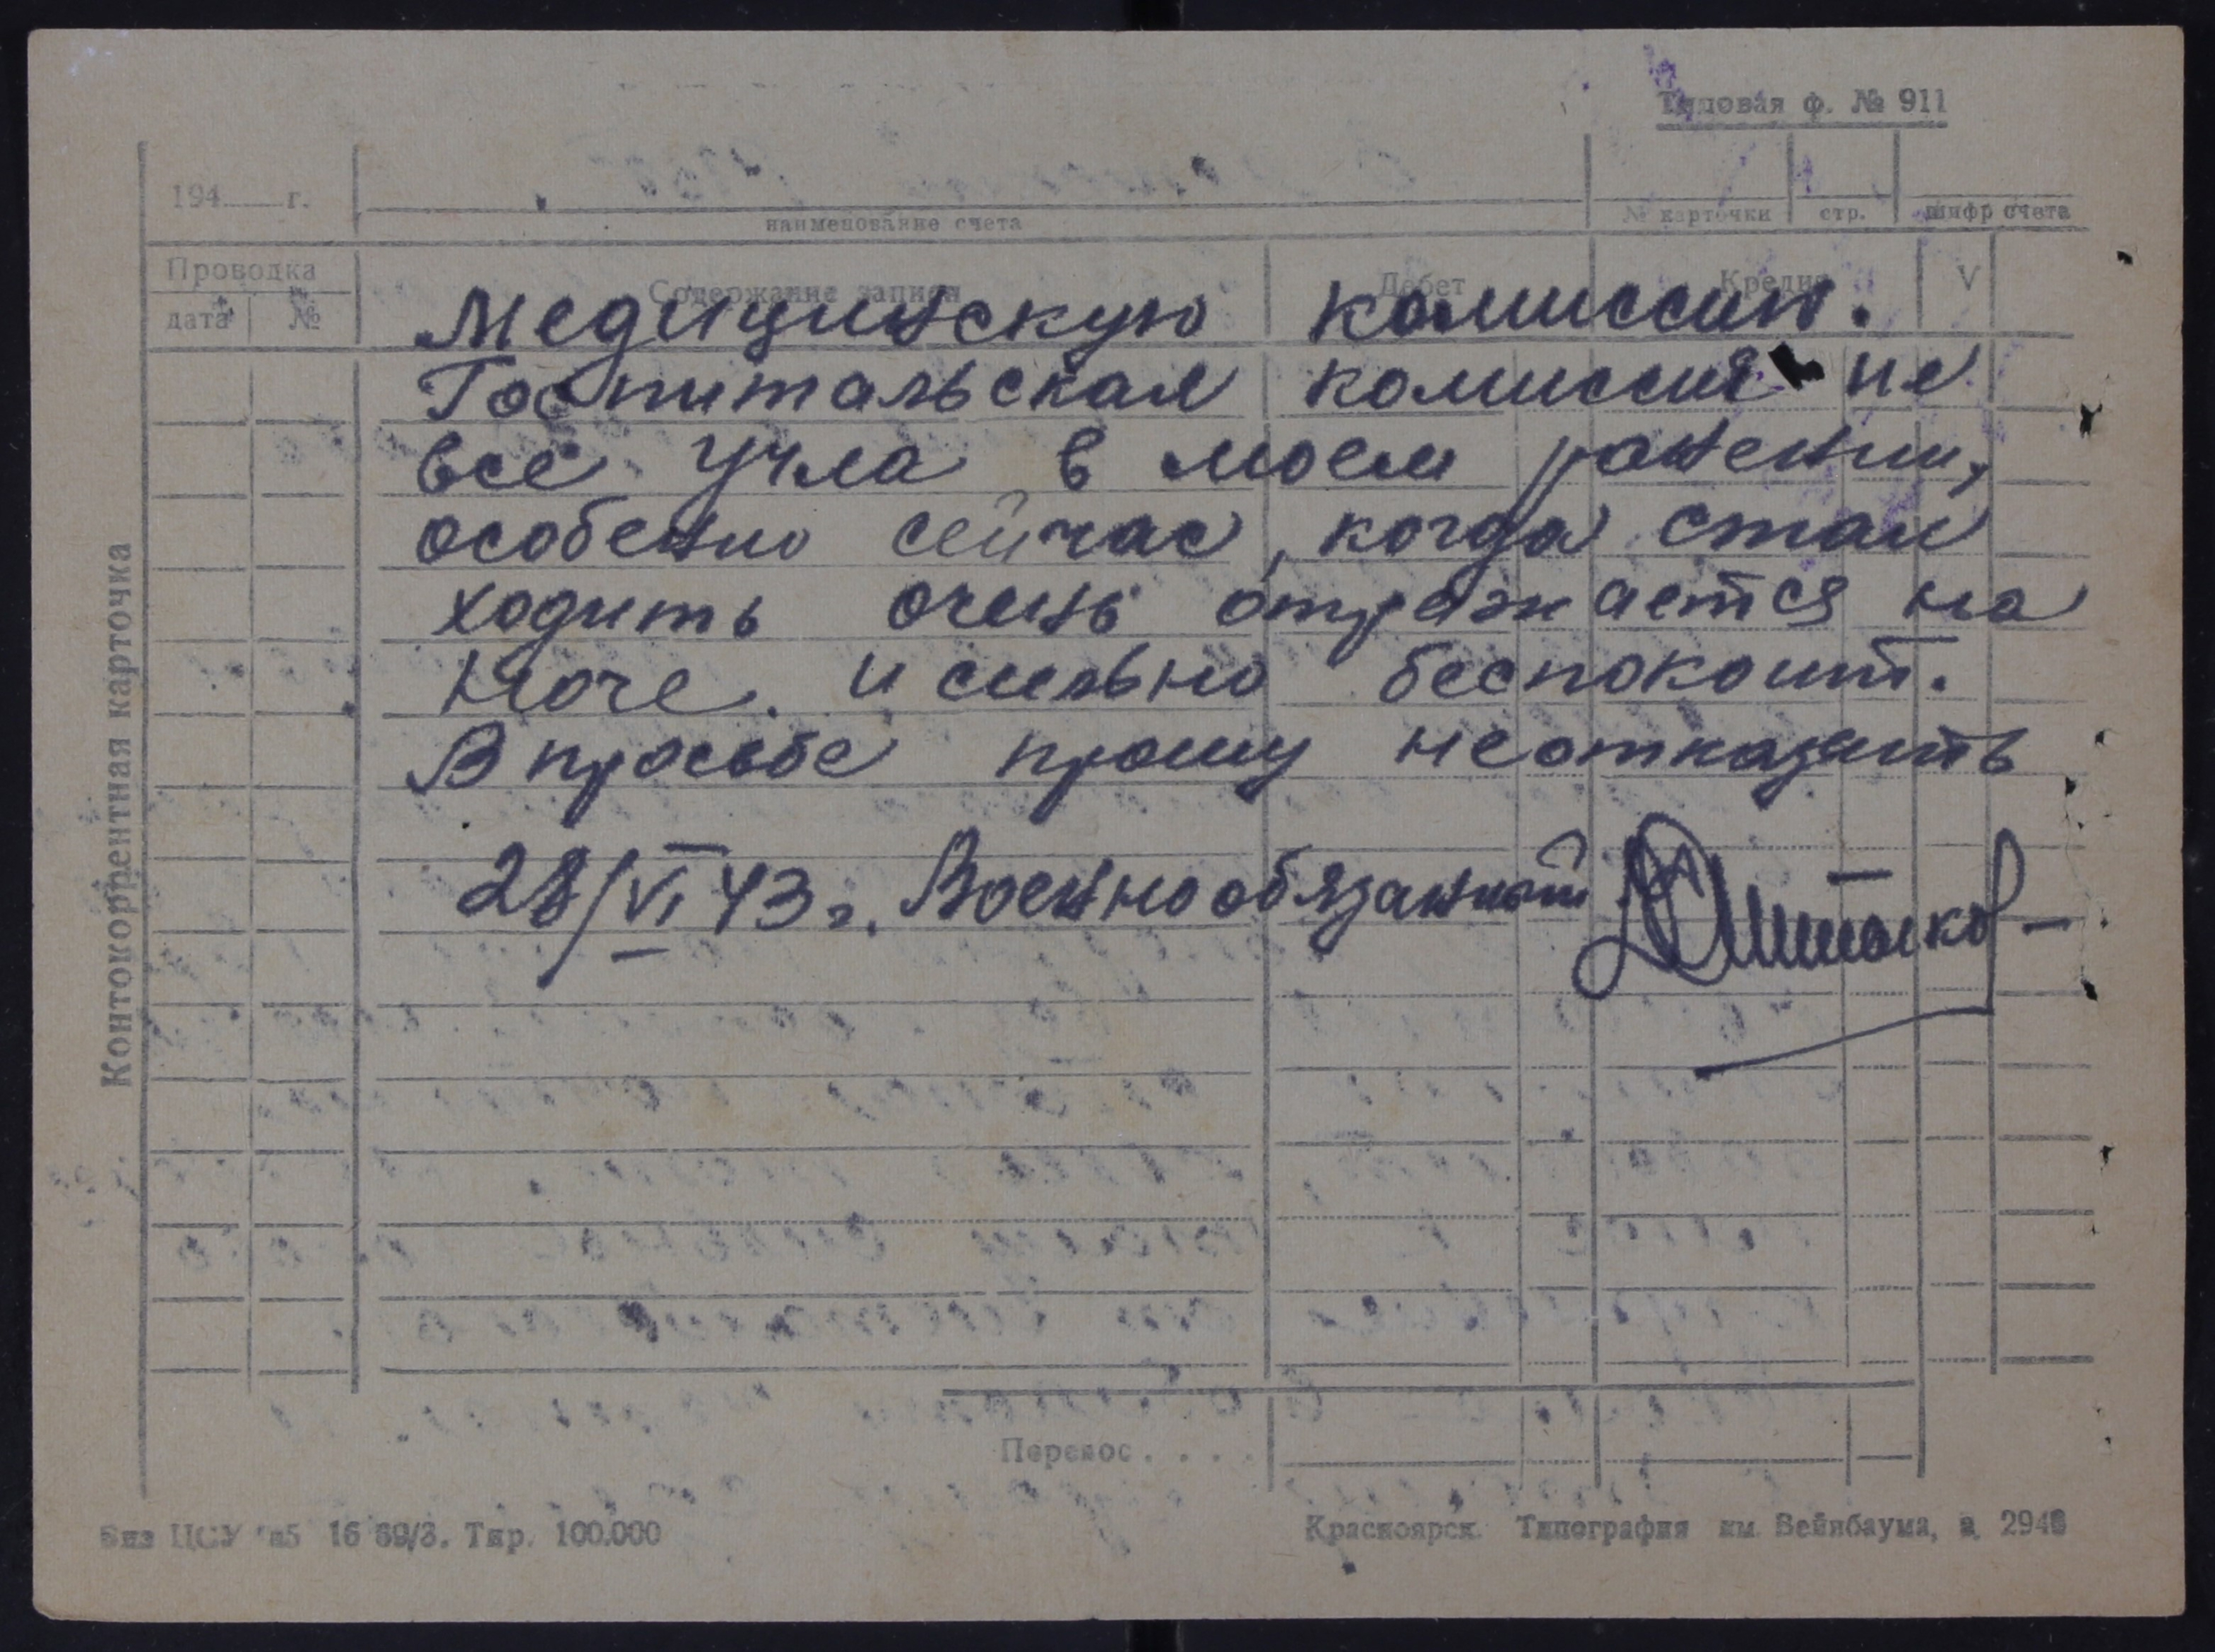 Типовая ф. № 911
194 г.
наименование счета
№ карточки стр. шифр счета
Проводка Содержание записи Дебет Кредит V
дата №
Медицинскую комиссию.
Госпитальская комиссия не
все учла в моем ранении,
особенно сейчас, когда стал
ходить очень отражается на
ноге. и сильно беспокоит.
В просьбе прошу неотказать
28/VI 43 г. Военнообязанный
Контокоррентная карточка
Перенос . . . .
ЦСУ Тир. 100.000
Красноярск. Типография им. Вейнбаума, з. 294